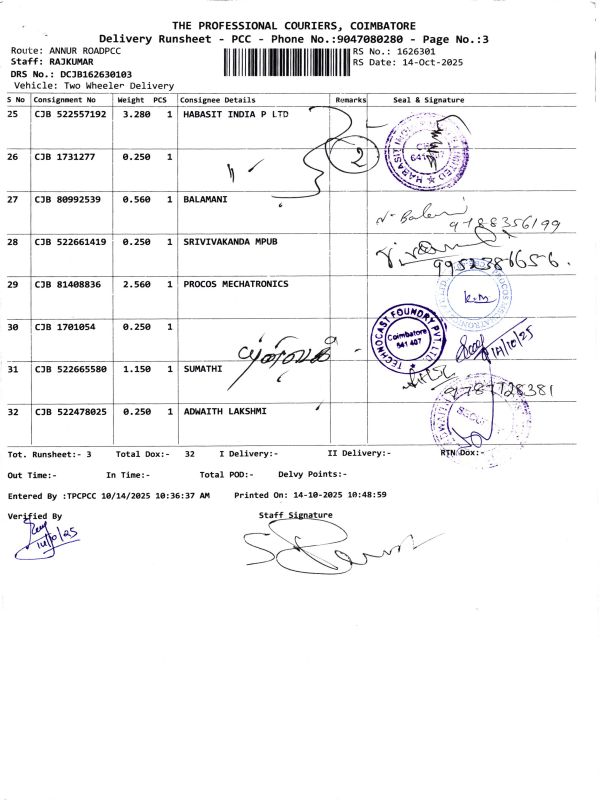 THE PROFESSIONAL COURIERS, COIMBATORE
Delivery Runsheet - PCC - Phone No.:9047080280 - Page No.:3
Route: ANNUR ROADPCC RS No.: 1626301
Staff: RAJKUMAR RS Date: 14-Oct-2025
DRS No.: DCJB162630103
Vehicle: Two Wheeler Delivery
S No Consignment No Weight PCS Consignee Details Remarks Seal & Signature
25 CJB 522557192 3.280 1 HABASIT INDIA P LTD
26 CJB 1731277 0.250 1 〃 2
27 CJB 80992539 0.560 1 BALAMANI
9788356199
28 CJB 522661419 0.250 1 SRIVIVAKANDA MPUB
9952386656.
29 CJB 81408836 2.560 1 PROCOS MECHATRONICS
30 CJB 1701054 0.250 1 TECHNOCAST FOUNDRY PVT. LTD. Coimbatore 641 407
14/10/25
31 CJB 522665580 1.150 1 SUMATHI
9787728381
32 CJB 522478025 0.250 1 ADWAITH LAKSHMI
Tot. Runsheet:- 3 Total Dox:- 32 I Delivery:- II Delivery:- RTN Dox:-
Out Time:- In Time:- Total POD:- Delvy Points:-
Entered By :TPCPCC 10/14/2025 10:36:37 AM Printed On: 14-10-2025 10:48:59
Verified By Staff Signature
14/10/25